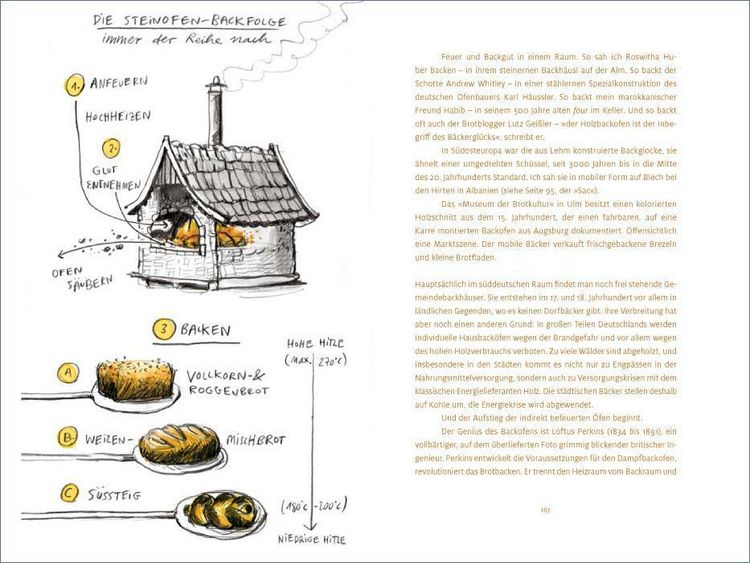 DIE STEINOFEN-BACKFOLGE
immer der Reihe nach
1. ANFEUERN
HOCHHEIZEN
2.
GLUT
ENTNEHMEN
OFEN
SÄUBERN
3 BACKEN
HOHE HITZE
(MAX. 270°C)
A
VOLLKORN-&
ROGGENBROT
B. WEIZEN- MISCHBROT
C SÜSSTEIG
(180°C -200°C)
NIEDRIGE HITZE
Feuer und Backgut in einem Raum. So sah ich Roswitha Hu-
ber backen – in ihrem steinernen Backhäusl auf der Alm. So backt der
Schotte Andrew Whitley – in einer stählernen Spezialkonstruktion des
deutschen Ofenbauers Karl Häussler. So backt mein marokkanischer
Freund Habib – in seinem 500 Jahre alten four im Keller. Und so backt
oft auch der Brotblogger Lutz Geißler – »der Holzbackofen ist der Inbe-
griff des Bäckerglücks«, schreibt er.
In Südosteuropa war die aus Lehm konstruierte Backglocke, sie
ähnelt einer umgedrehten Schüssel, seit 3000 Jahren bis in die Mitte
des 20. Jahrhunderts Standard. Ich sah sie in mobiler Form auf Blech bei
den Hirten in Albanien (siehe Seite 95, der »Sac«).
Das »Museum der Brotkultur« in Ulm besitzt einen kolorierten
Holzschnitt aus dem 15. Jahrhundert, der einen fahrbaren, auf eine
Karre montierten Backofen aus Augsburg dokumentiert. Offensichtlich
eine Marktszene. Der mobile Bäcker verkauft frischgebackene Brezeln
und kleine Brotfladen.
Hauptsächlich im süddeutschen Raum findet man noch frei stehende Ge-
meindebackhäuser. Sie entstehen im 17. und 18. Jahrhundert vor allem in
ländlichen Gegenden, wo es keinen Dorfbäcker gibt. Ihre Verbreitung hat
aber noch einen anderen Grund: In großen Teilen Deutschlands werden
individuelle Hausbacköfen wegen der Brandgefahr und vor allem wegen
des hohen Holzverbrauchs verboten. Zu viele Wälder sind abgeholzt, und
insbesondere in den Städten kommt es nicht nur zu Engpässen in der
Nahrungsmittelversorgung, sondern auch zu Versorgungskrisen mit dem
klassischen Energielieferanten Holz. Die städtischen Bäcker stellen deshalb
auf Kohle um, die Energiekrise wird abgewendet.
Und der Aufstieg der indirekt befeuerten Öfen beginnt.
Der Genius des Backofens ist Loftus Perkins (1834 bis 1891), ein
vollbärtiger, auf dem überlieferten Foto grimmig blickender britischer In-
genieur. Perkins entwickelt die Voraussetzungen für den Dampfbackofen,
revolutioniert das Brotbacken. Er trennt den Heizraum vom Backraum und
187